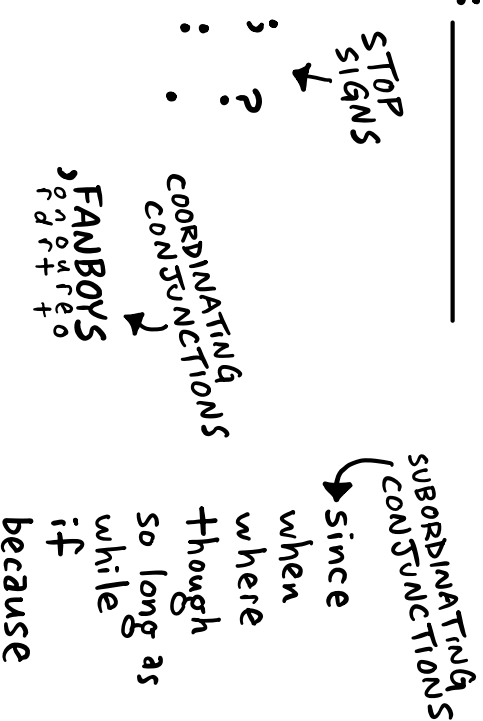 STOP
SIGNS
; ?
: .
COORDINATING
CONJUNCTIONS
, FANBOYS
onoureo
rdrt t
SUBORDINATING
CONJUNCTIONS
since
when
where
though
so long as
while
if
because